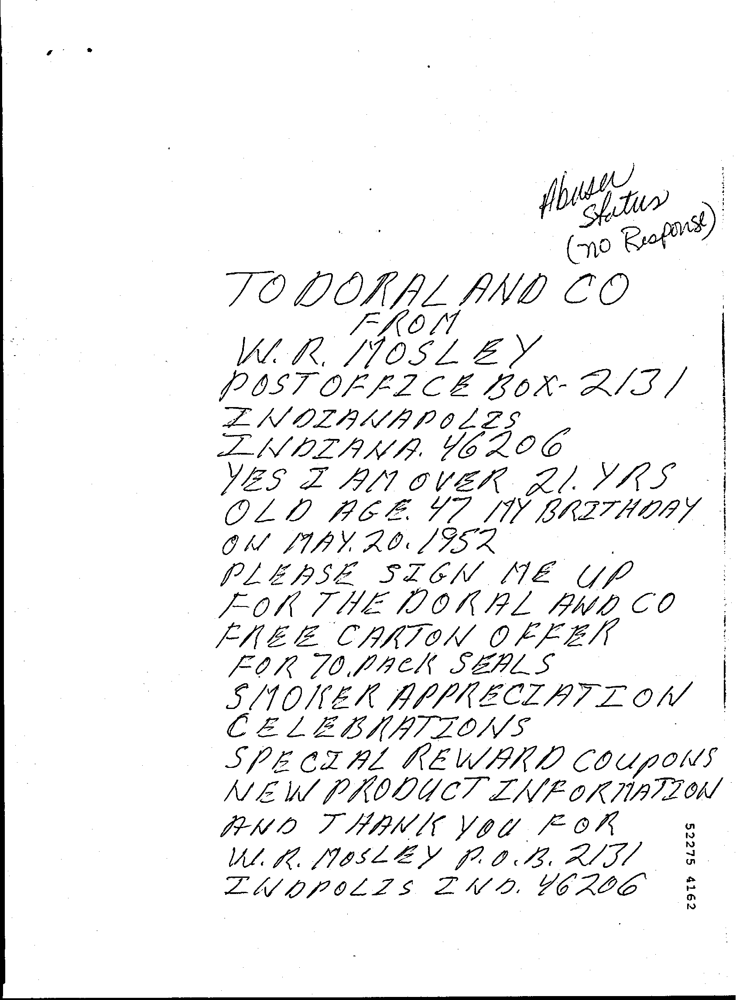 Abuser
Status
(no Response)
TO DORAL AND CO
FROM
W. R. MOSLEY
POST OFFICE BOX- 2131
INDIANAPOLIS
INDIANA. 46206
YES I AM OVER 21. YRS
OLD AGE. 47 MY BRITHDAY
ON MAY. 20. 1952
PLEASE SIGN ME UP
FOR THE DORAL AND CO
FREE CARTON OFFER
FOR 70. PACK SEALS
SMOKER APPRECIATION
CELEBRATIONS
SPECIAL REWARD COUPONS
NEW PRODUCT INFORMATION
AND THANK YOU FOR
W. R. MOSLEY P.O.B. 2131
INDPOLIS IND. 46206
52275 4162